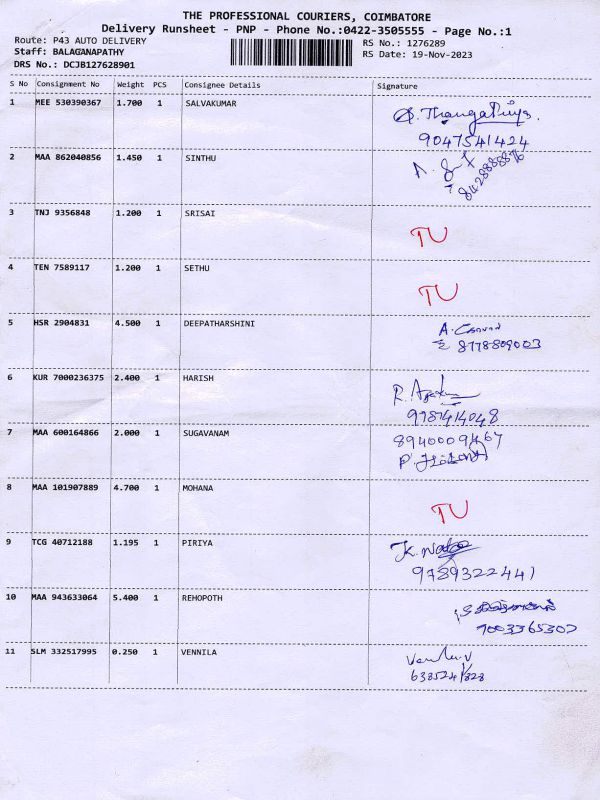 THE PROFESSIONAL COURIERS, COIMBATORE
Delivery Runsheet - PNP - Phone No.:0422-3505555 - Page No.:1
Route: P43 AUTO DELIVERY
RS No.: 1276289
Staff: BALAGANAPATHY
RS Date: 19-Nov-2023
DRS No.: DCJB127628901
S No Consignment No Weight PCS Consignee Details Signature
1 MEE 530390367 1.700 1 SALVAKUMAR
9047541424
2 MAA 862040856 1.450 1 SINTHU
3 TNJ 9356848 1.200 1 SRISAI
TU
4 TEN 7589117 1.200 1 SETHU
TU
5 HSR 2904831 4.500 1 DEEPATHARSHINI
8778809003
6 KUR 7000236375 2.400 1 HARISH
9787414048
7 MAA 600164866 2.000 1 SUGAVANAM
8940009467
8 MAA 101907889 4.700 1 MOHANA
TU
9 TCG 40712188 1.195 1 PIRIYA
9789322441
10 MAA 943633064 5.400 1 REHOPOTH
11 SLM 332517995 0.250 1 VENNILA